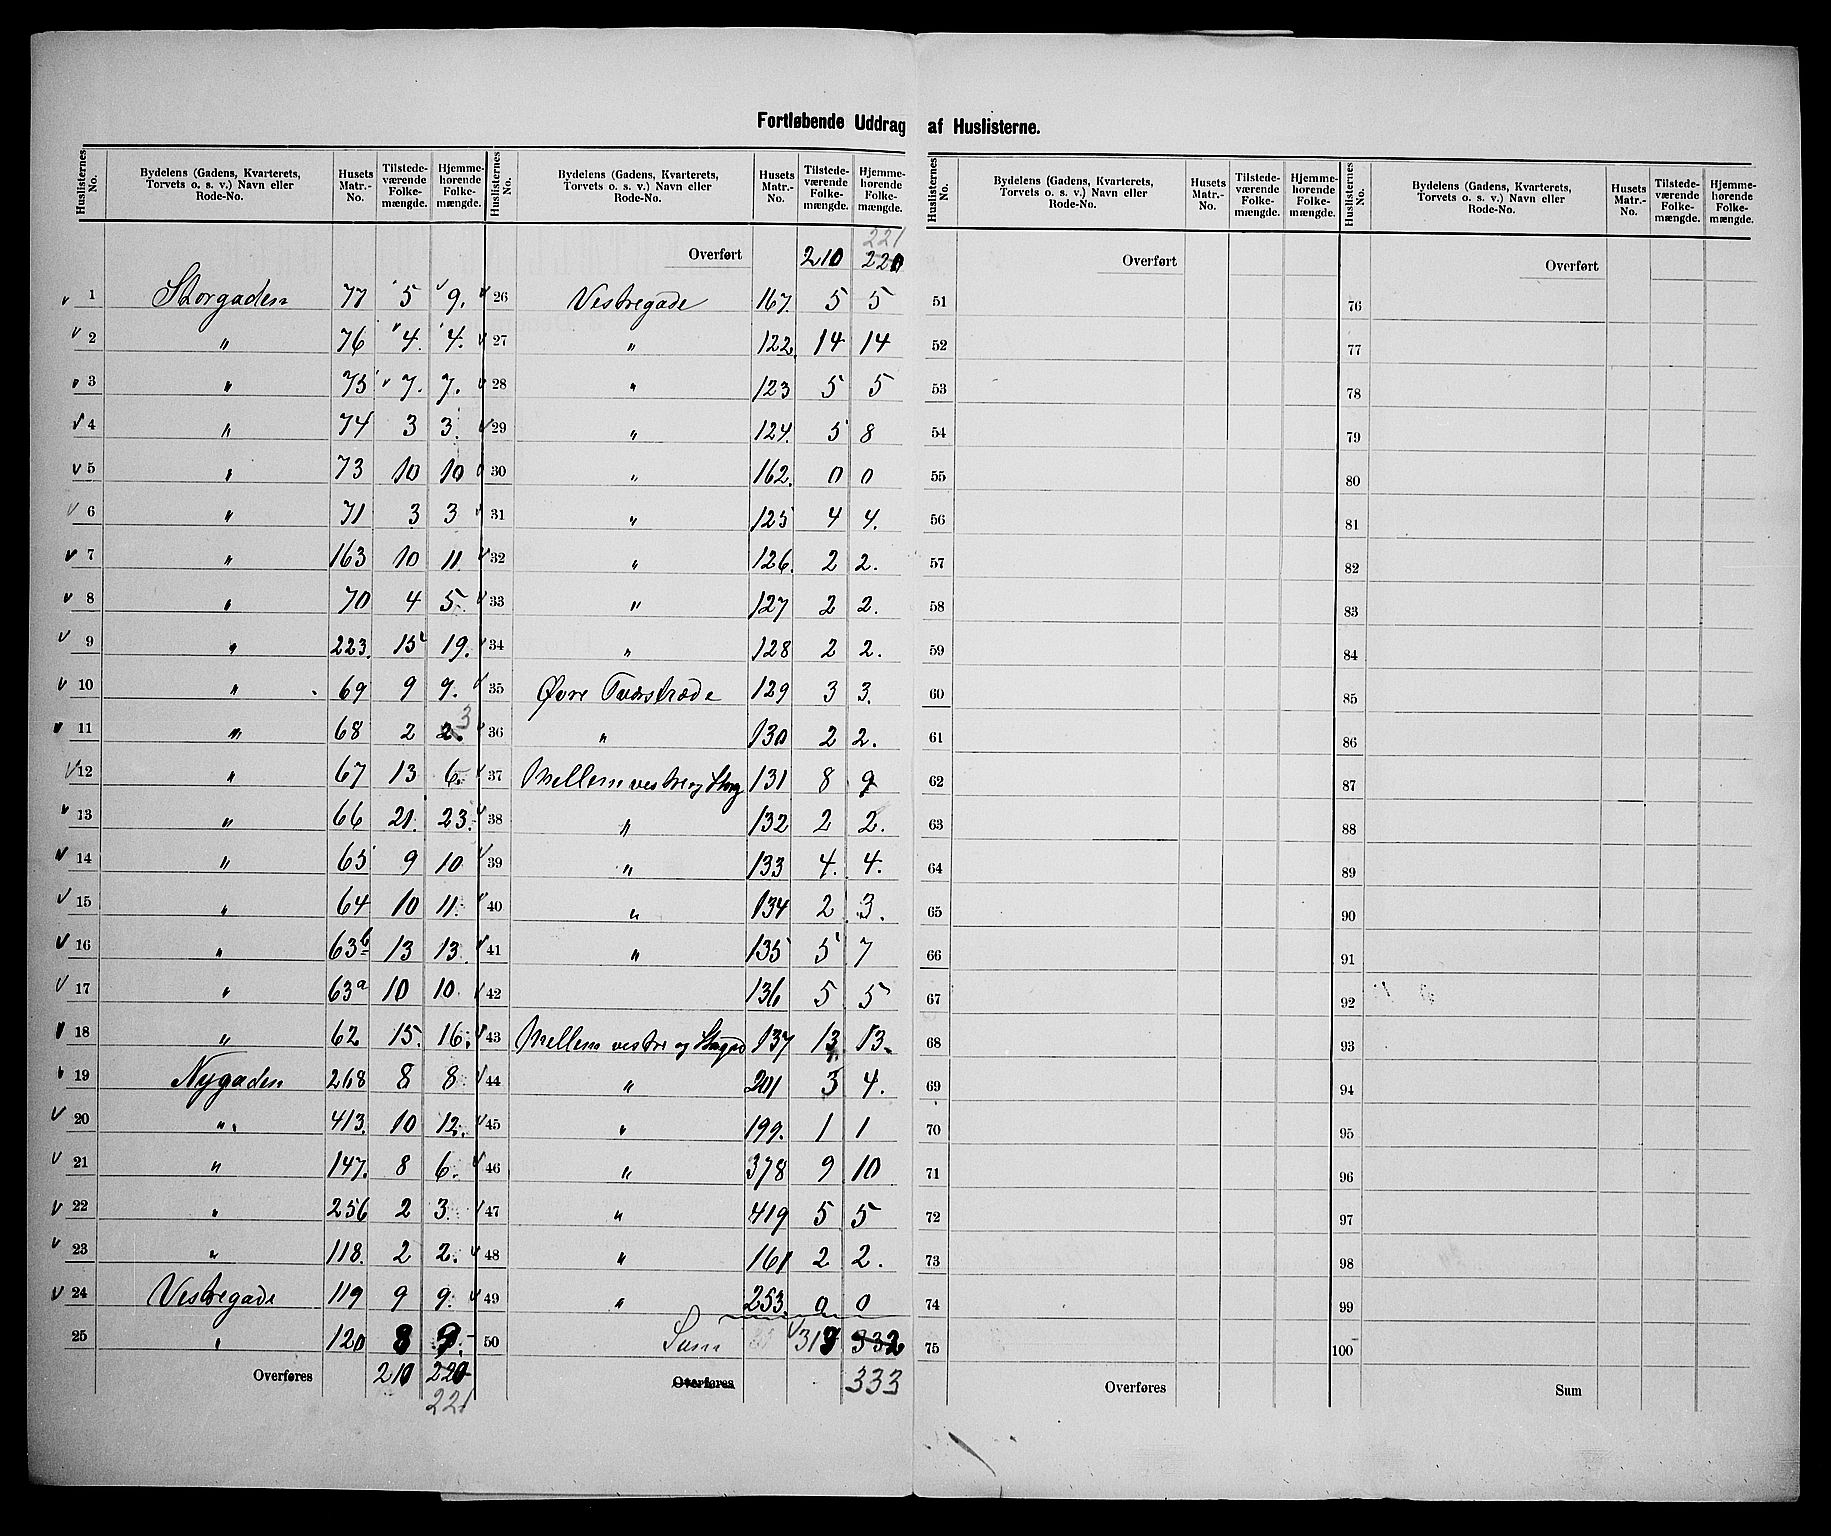 Fortløbende Uddrag af Huslisterne.
Huslisternes No. | Bydelens (Gadens, Kvarterets, Torvets o. s. v.) Navn eller Rode-No. | Husets Matr.-No. | Tilstedeværende Folkemængde. | Hjemmehørende Folkemængde. | Huslisternes No. | Bydelens (Gadens, Kvarterets, Torvets o. s. v.) Navn eller Rode-No. | Husets Matr.-No. | Tilstedeværende Folkemængde. | Hjemmehørende Folkemængde. | Huslisternes No. | Bydelens (Gadens, Kvarterets, Torvets o. s. v.) Navn eller Rode-No. | Husets Matr.-No. | Tilstedeværende Folkemængde. | Hjemmehørende Folkemængde. | Huslisternes No. | Bydelens (Gadens, Kvarterets, Torvets o. s. v.) Navn eller Rode-No. | Husets Matr.-No. | Tilstedeværende Folkemængde. | Hjemmehørende Folkemængde.
221
Overført 210 220 Overført Overført
1 Storgaden 77 5 9. 26 Vestregade 167. 5 5 51 76
2 " 76 4. 4. 27 " 122. 14 14 52 77
3 " 75 7. 7. 28 " 123 5 5 53 78
4 " 74 3 3. 29 " 124. 5 8 54 79
5 " 73 10 10 30 " 162. 0 0 55 80
6 " 71 3 3 31 " 125 4 4. 56 81
7 " 163 10 11. 32 " 126. 2 2. 57 82
8 " 70 4 5. 33 " 127 2 2. 58 83
9 " 223. 15 19. 34 " 128 2 2. 59 84
10 " 69 9 9. 35 Øvre Tværstræde 129 3 3. 60 85
11 " 68 2 2. 3 36 " 130 2 2. 61 86
12 " 67 13 6. 37 Mellem vestre og Storg 131 8 9 62 87
13 " 66 21. 23. 38 " 132 2 2. 63 88
14 " 65 9 10 39 " 133 4. 4. 64 89
15 " 64 10 11. 40 " 134 2 3. 65 90
16 " 63b 13 13. 41 " 135 5 7 66 91
17 " 63a 10 10. 42 136 5 5 67 92
18 " 62 15. 16. 43 Mellem vestre og Storgad 137 13 13. 68 93
19 Nygaden 268 8 8 44 " 201 3 4. 69 94
20 " 413. 10 12. 45 " 199. 1 1 70 95
21 " 147. 8 6. 46 " 378 9 10 71 96
22 " 256 2 3. 47 " 419 5 5 72 97
23 " 118. 2 2. 48 " 161 2 2. 73 98
24 Vestregade 119 9 9. 49 " 253. 0 0 74 99
25 " 120 8 9. 50 Sum 317 332 75 100
Overføres 210 220 Overføres 333 Overføres Sum
221